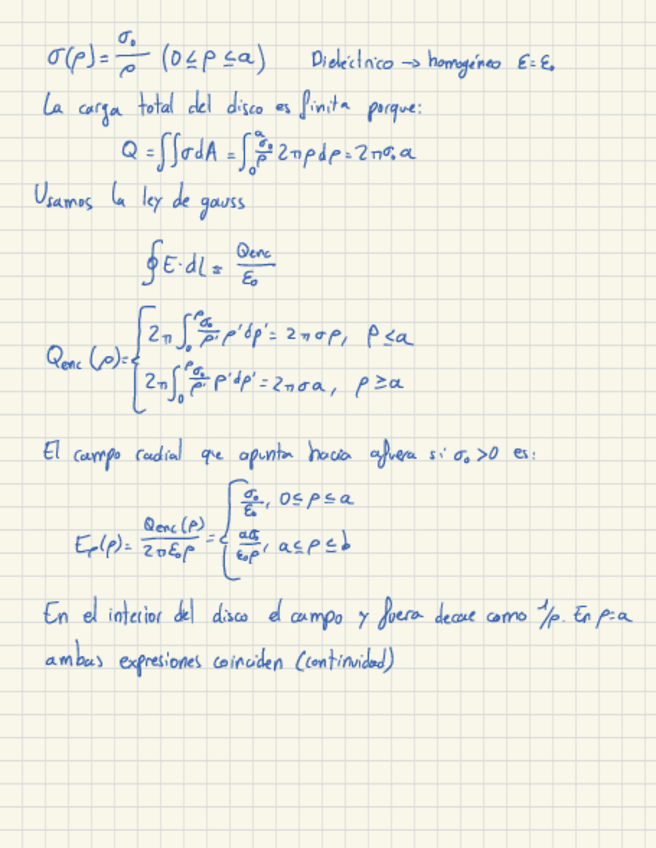 σ(ρ) = σ₀/ρ (0 ≤ ρ ≤ a) Dieléctrico → homogéneo ε = ε₀
La carga total del disco es finita porque:
Q = ∫∫σdA = ∫₀ᵃ σ₀/ρ 2πρdρ = 2πσ₀a
Usamos la ley de gauss
∮E·dl = Qenc/ε₀
Qenc(ρ) = { 2π ∫₀^ρ σ₀/ρ' ρ'dρ' = 2πσρ, ρ ≤ a
2π ∫₀^ρ σ₀/ρ' ρ'dρ' = 2πσa, ρ ≥ a
El campo radial que apunta hacia afuera si σ₀ > 0 es:
Eρ(ρ) = Qenc(ρ)/2πε₀ρ = { σ₀/ε₀, 0 ≤ ρ ≤ a
aσ₀/ε₀ρ, a ≤ ρ ≤ b
En el interior del disco el campo y fuera decae como 1/ρ. En ρ=a
ambas expresiones coinciden (continuidad)